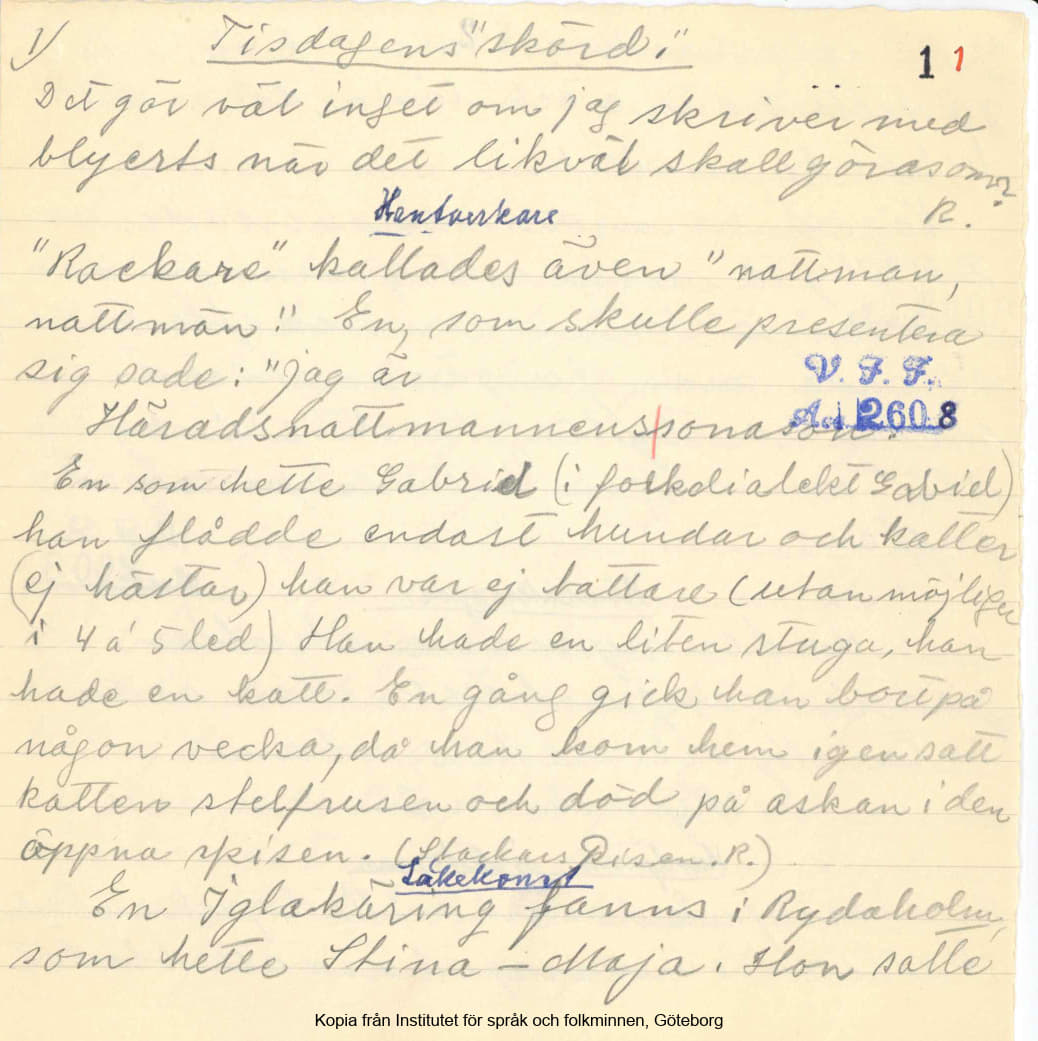 1) Tisdagens "skörd." 1 1
Det gör väl inget om jag skriver med
blyerts när det likväl skall göras om?
R.
Hantverkare
"Rackare" kallades även "nattman,
nattmän." En, som skulle presentera
sig sade: "jag är
V. F. F.
Häradsnattmannens|sonason.
Acc 2608
En som hette Gabriel (i folkdialekt Gabbel)
han flådde endast hundar och katter
(ej hästar) han var ej tattare (utan möjligen
i 4 á 5 led) Han hade en liten stuga, han
hade en katt. En gång gick han bort på
någon vecka, då han kom hem igen satt
katten stelfrusen och död på askan i den
öppna spisen. (Stackars Kisen. R.)
Läkekonst
En Iglakäring fanns i Rydaholm,
som hette Stina – Maja. Hon satte
Kopia från Institutet för språk och folkminnen, Göteborg